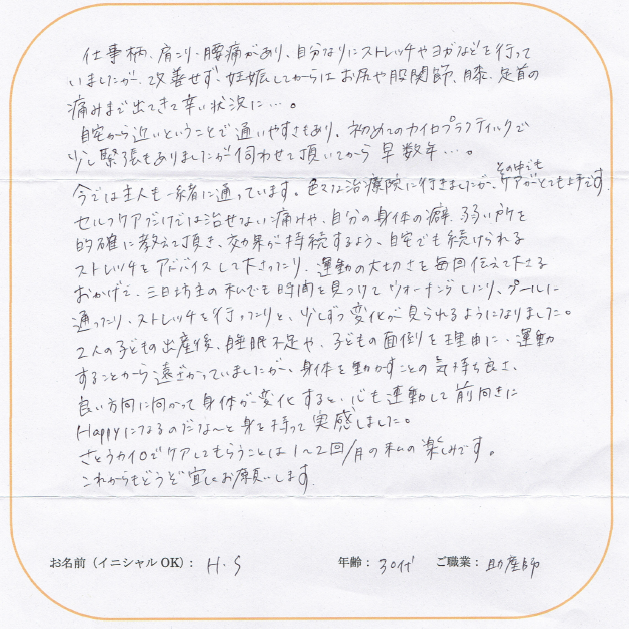 仕事柄、肩こり・腰痛があり、自分なりにストレッチやヨガなどを行って
いましたが、改善せず、妊娠してからはお尻や股関節、膝、足首の
痛みまで出てきて辛い状況に…。
自宅から近いということで通いやすさもあり、初めてのカイロプラクティックで
少し緊張もありましたが伺わせて頂いてから早数年…。
今では主人も一緒に通っています。色々な治療院に行きましたが、その中でもケアがとても上手です。
セルフケアだけでは治せない痛みや、自分の身体の癖、弱い所を
的確に教えて頂き、効果が持続するよう、自宅でも続けられる
ストレッチをアドバイスして下さったり、運動の大切さを毎回伝えて下さる
おかげで、三日坊主の私でも時間を見つけてウォーキングしたり、プールに
通ったり、ストレッチを行ったりと、少しずつ変化が見られるようになりました。
2人の子どもの出産後、睡眠不足や、子どもの面倒を理由に、運動
することから遠ざかっていましたが、身体を動かすことの気持ち良さ、
良い方向に向かって身体が変化すると、心も連動して前向きに
Happyになるのだな〜と身を持って実感しました。
さとうカイロでケアしてもらうことは1〜2回/月の私の楽しみです。
これからもどうぞ宜しくお願いします。
お名前（イニシャルOK）： H.S 年齢： 30代 ご職業： 助産師